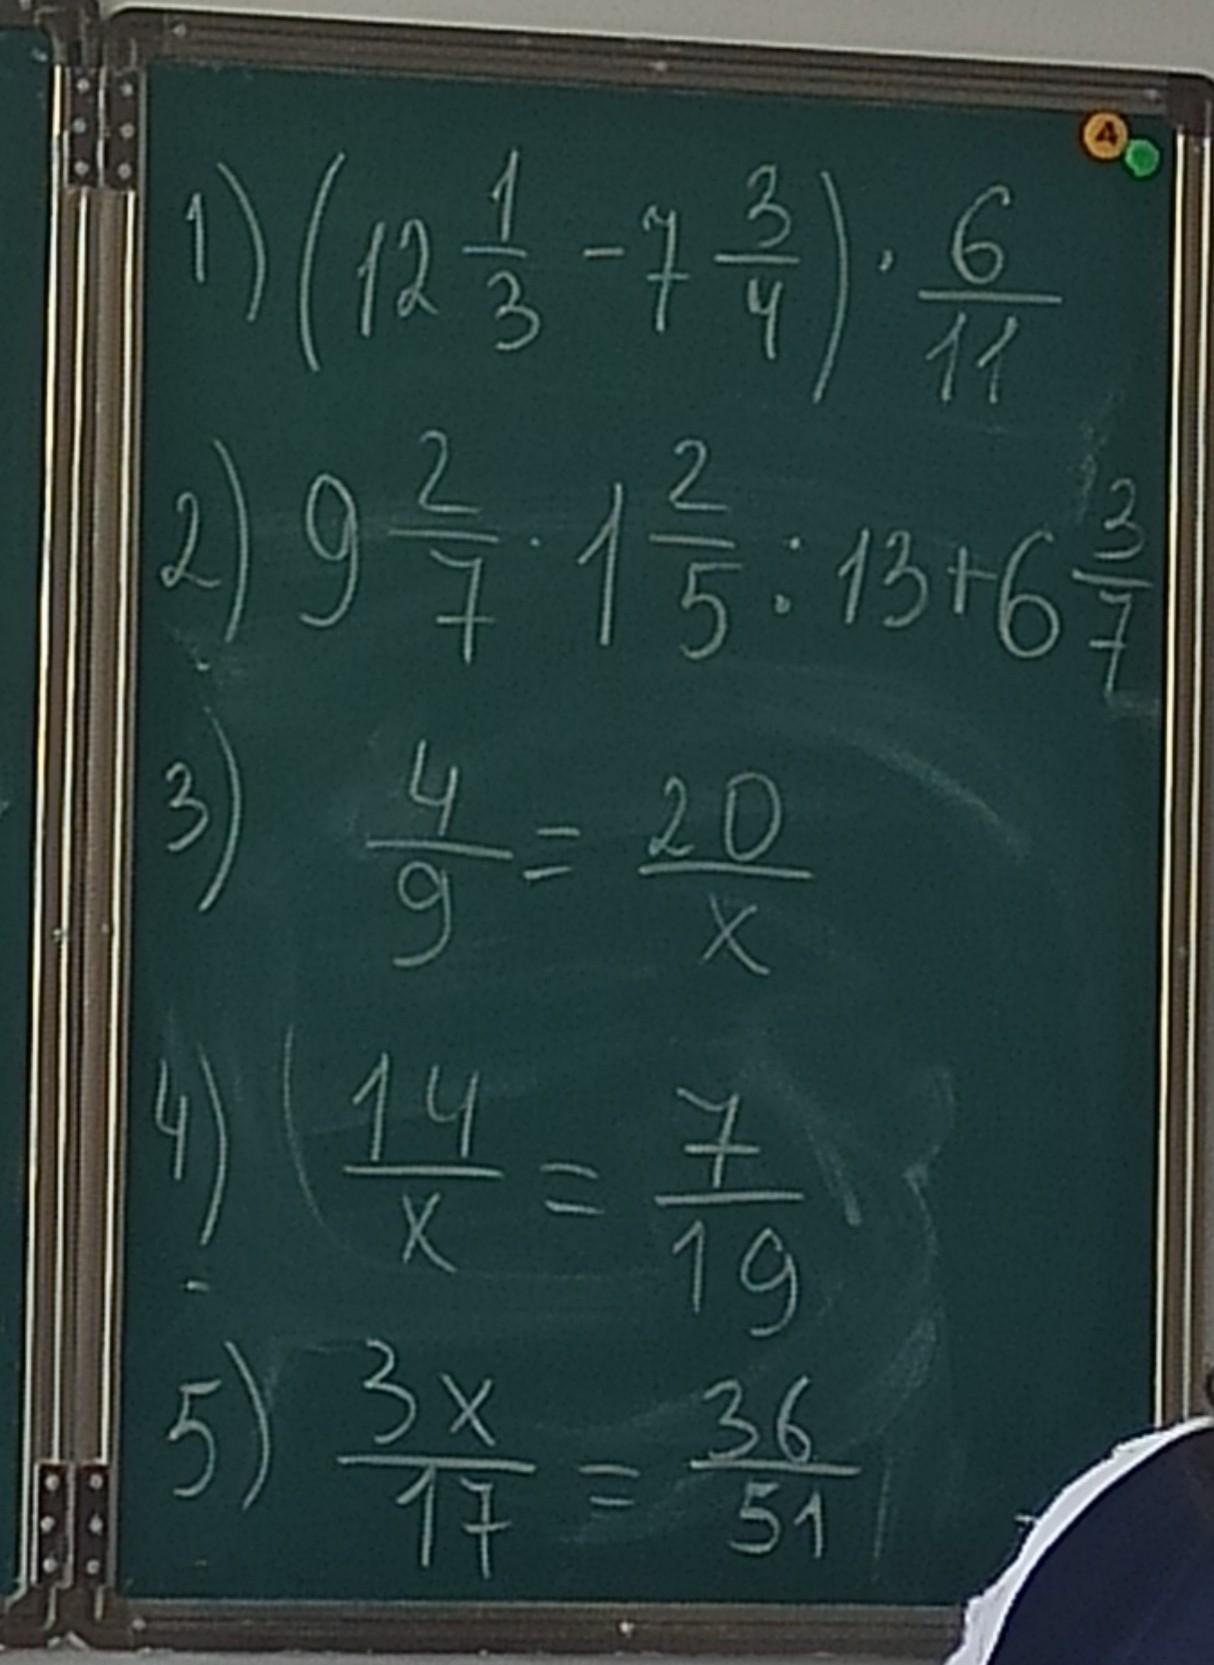 1) (12 1/3 - 7 3/4) · 6/11
2) 9 2/7 · 1 2/5 : 13 + 6 3/7
3) 4/9 = 20/x
4) 14/x = 7/19
5) 3x/17 = 36/51
4